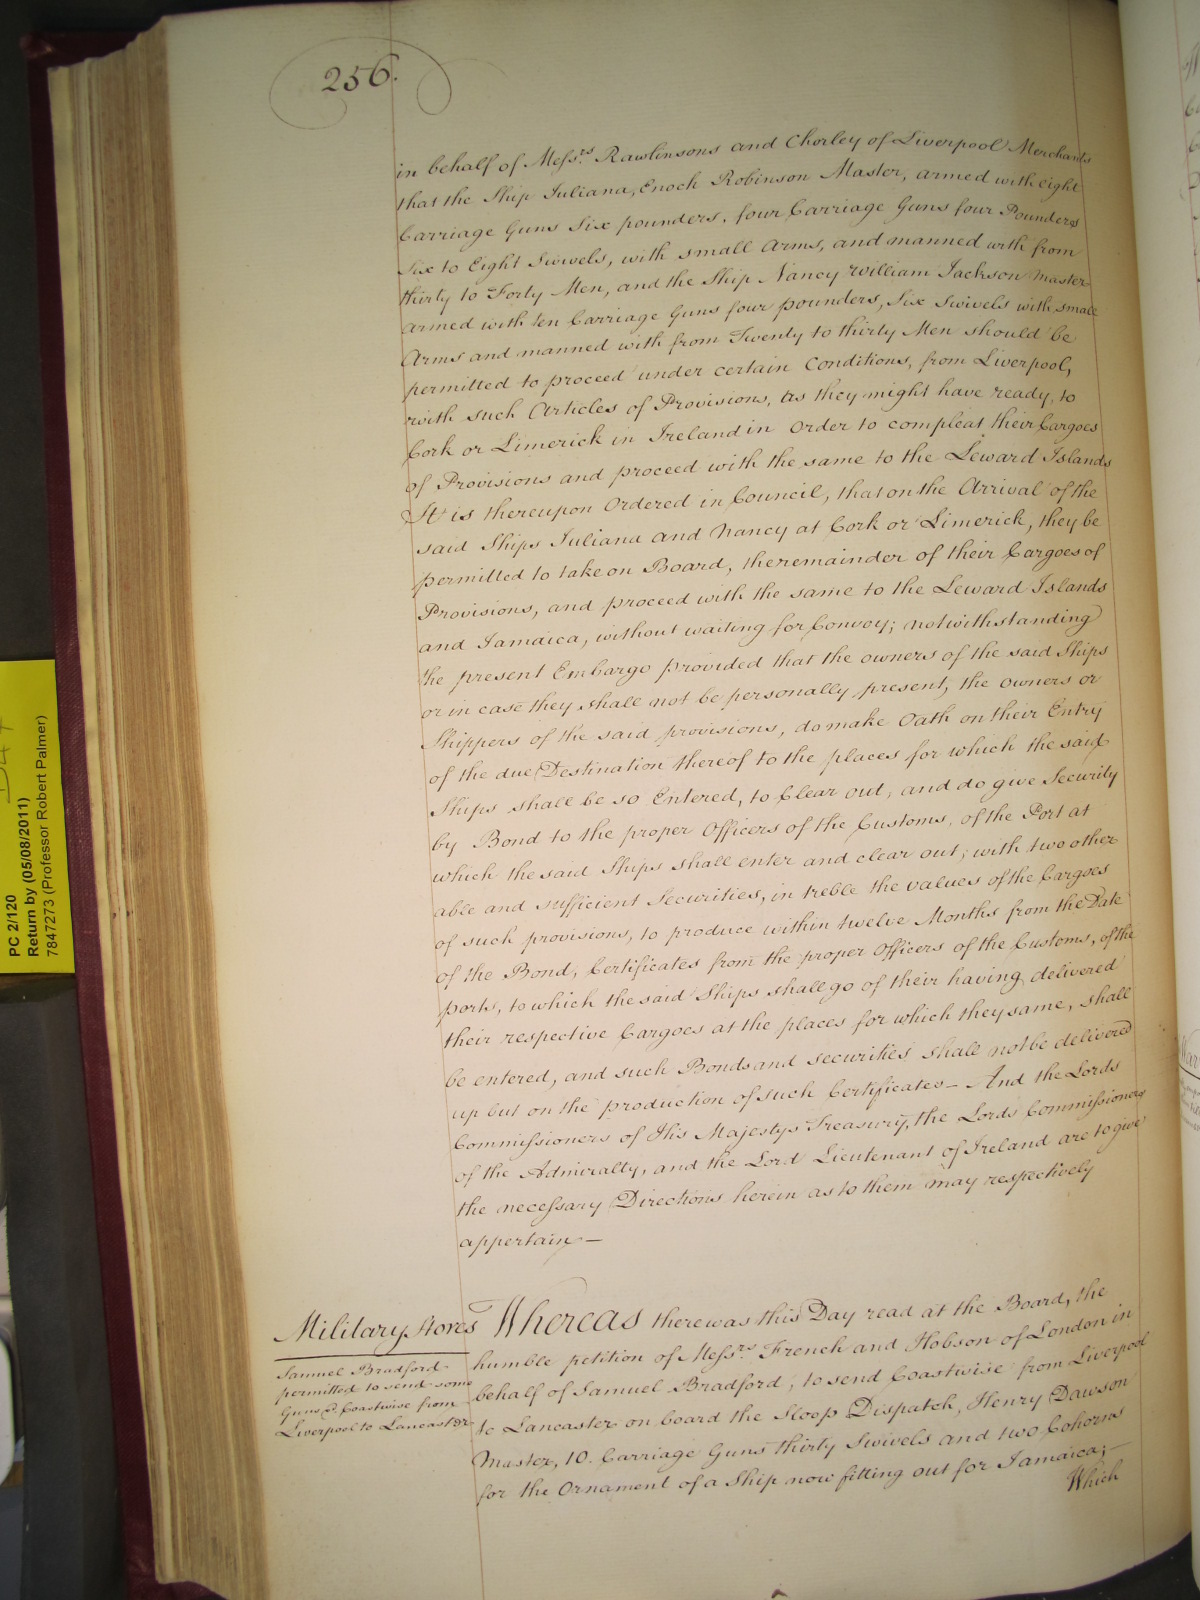 256.
in behalf of Mess.rs Rawlinsons and Chorley of Liverpool Merchants
that the Ship Iuliana, Enoch Robinson Master, armed with eight
Carriage Guns Six pounders, four Carriage Guns four Pounders
Six to Eight Swivels, with small Arms, and manned with from
thirty to Forty Men, and the Ship Nancy William Jackson Master
armed with ten Carriage Guns four pounders, Six Swivels with small
Arms and manned with from Twenty to thirty Men should be
permitted to proceed under certain Conditions, from Liverpool,
with such Articles of Provisions, as they might have ready, to
Cork or Limerick in Ireland in Order to compleat their Cargoes
of Provisions and proceed with the same to the Leward Islands
It is thereupon Ordered in Council, that on the Arrival of the
said Ships Iuliana and Nancy at Cork or Limerick, they be
permitted to take on Board, the remainder of their Cargoes of
Provisions, and proceed with the same to the Leward Islands
and Jamaica, without waiting for Convoy; notwithstanding
the present Embargo provided that the owners of the said Ships
or in case they shall not be personally present, the owners or
Shippers of the said provisions, do make Oath on their Entry
of the due Destination thereof to the places for which the said
Ships shall be so Entered, to Clear out, and do give Security
by Bond to the proper Officers of the Customs, of the Port at
which the said Ships shall enter and clear out; with two other
able and sufficient Securities, in treble the values of the Cargoes
of such provisions, to produce within twelve Months from the Date
of the Bond, Certificates from the proper Officers of the Customs, of the
ports, to which the said Ships shall go of their having delivered
their respective Cargoes at the places for which they same, shall
be entered, and such Bonds and securities shall not be delivered
up but on the production of such Certificates — And the Lords
Commissioners of His Majestys Treasury, the Lords Commissioners
of the Admiralty, and the Lord Lieutenant of Ireland are to give
the necessary Directions herein as to them may respectively
appertain —
Military Stores
Samuel Bradford
permitted to send some
Guns &c. Coastwise from
Liverpool to Lancaster
Whereas there was this Day read at the Board, the
humble petition of Mess.rs French and Hobson of London in
behalf of Samuel Bradford, to send Coastwise from Liverpool
to Lancaster on board the Sloop Dispatch, Henry Dawson
Master, 10. Carriage Guns thirty Swivels and two Cohorns
for the Ornament of a Ship now fitting out for Jamaica; —
Which
PC 2/120
Return by (05/08/2011)
7847273 (Professor Robert Palmer)